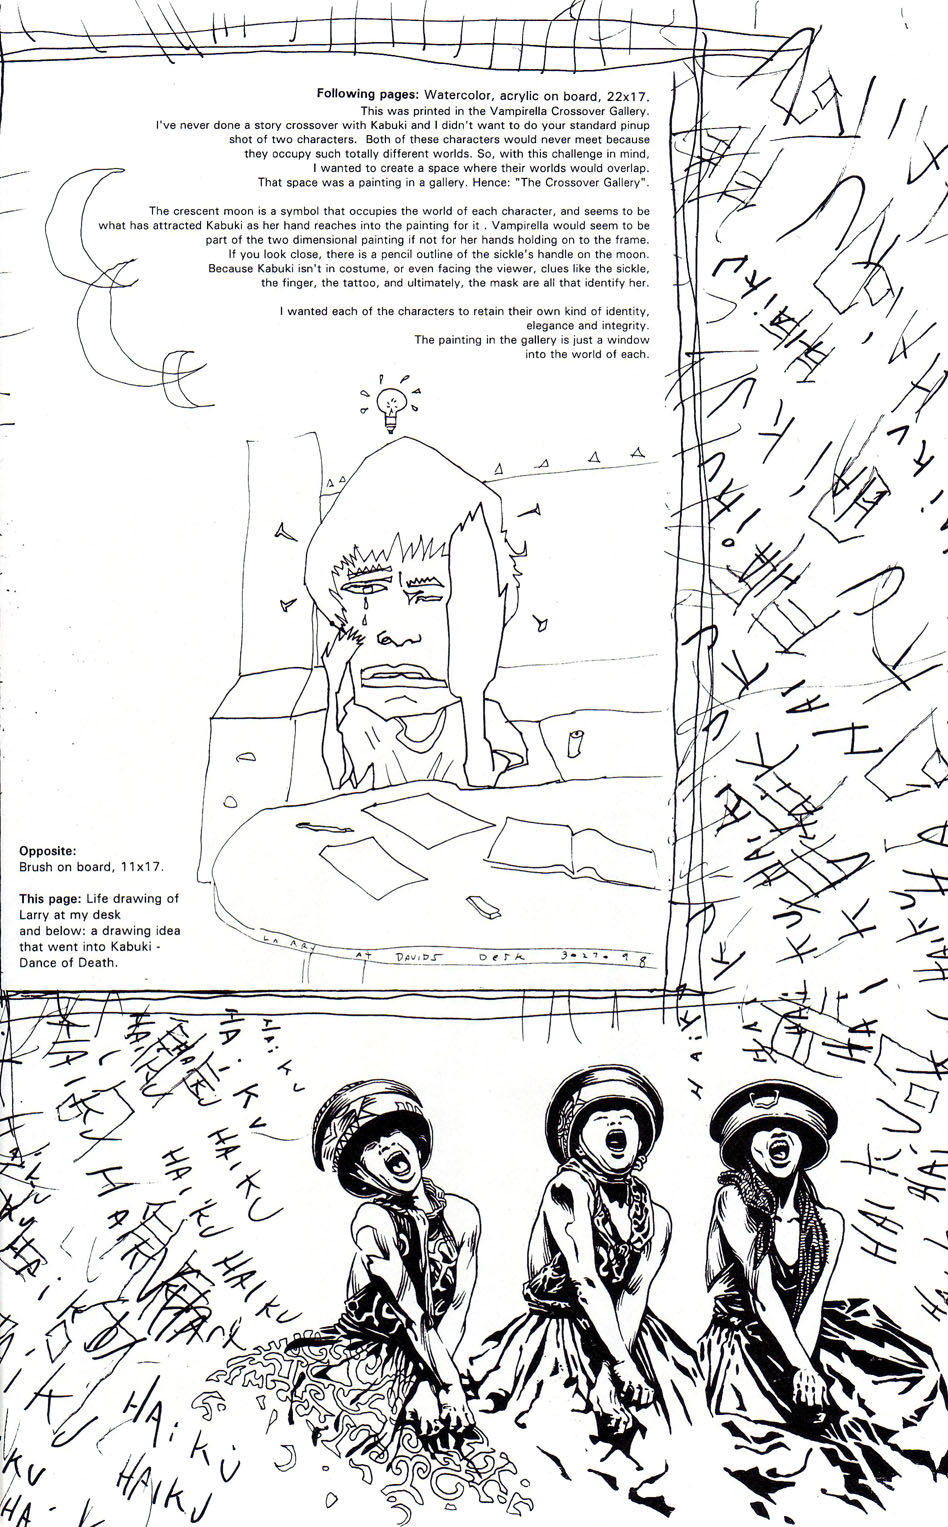 Following pages: Watercolor, acrylic on board, 22x17.
This was printed in the Vampirella Crossover Gallery.
I've never done a story crossover with Kabuki and I didn't want to do your standard pinup
shot of two characters.  Both of these characters would never meet because
they occupy such totally different worlds. So, with this challenge in mind,
I wanted to create a space where their worlds would overlap.
That space was a painting in a gallery. Hence: "The Crossover Gallery".
The crescent moon is a symbol that occupies the world of each character, and seems to be
what has attracted Kabuki as her hand reaches into the painting for it . Vampirella would seem to be
part of the two dimensional painting if not for her hands holding on to the frame.
If you look close, there is a pencil outline of the sickle's handle on the moon.
Because Kabuki isn't in costume, or even facing the viewer, clues like the sickle,
the finger, the tattoo, and ultimately, the mask are all that identify her.
I wanted each of the characters to retain their own kind of identity,
elegance and integrity.
The painting in the gallery is just a window
into the world of each.
Opposite:
Brush on board, 11x17.
This page: Life drawing of
Larry at my desk
and below: a drawing idea
that went into Kabuki -
Dance of Death.
LARRY AT DAVIDS DESK 3·27·98
HAiKU
HAiKU
HAIKU
HAiKU
HAIKU
HAiKU
HAIKU
HAiKU
HAIKU